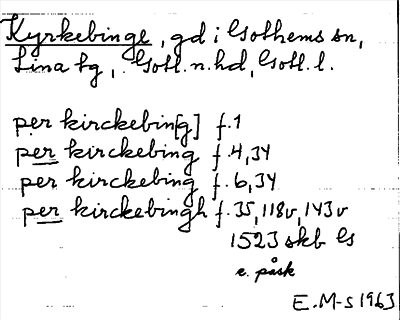 Kyrkebinge, gd i Gothems sn,
Lina tg, Gotl. n. hd, Gotl. l.
per kirckebin[g] f. 1
per kirckebing f. 4, 34
per kirckebing f. 6, 34
per kirckebingh f. 35, 118v, 143v
1523 skb Gs
e. påsk
E. M-s 1963